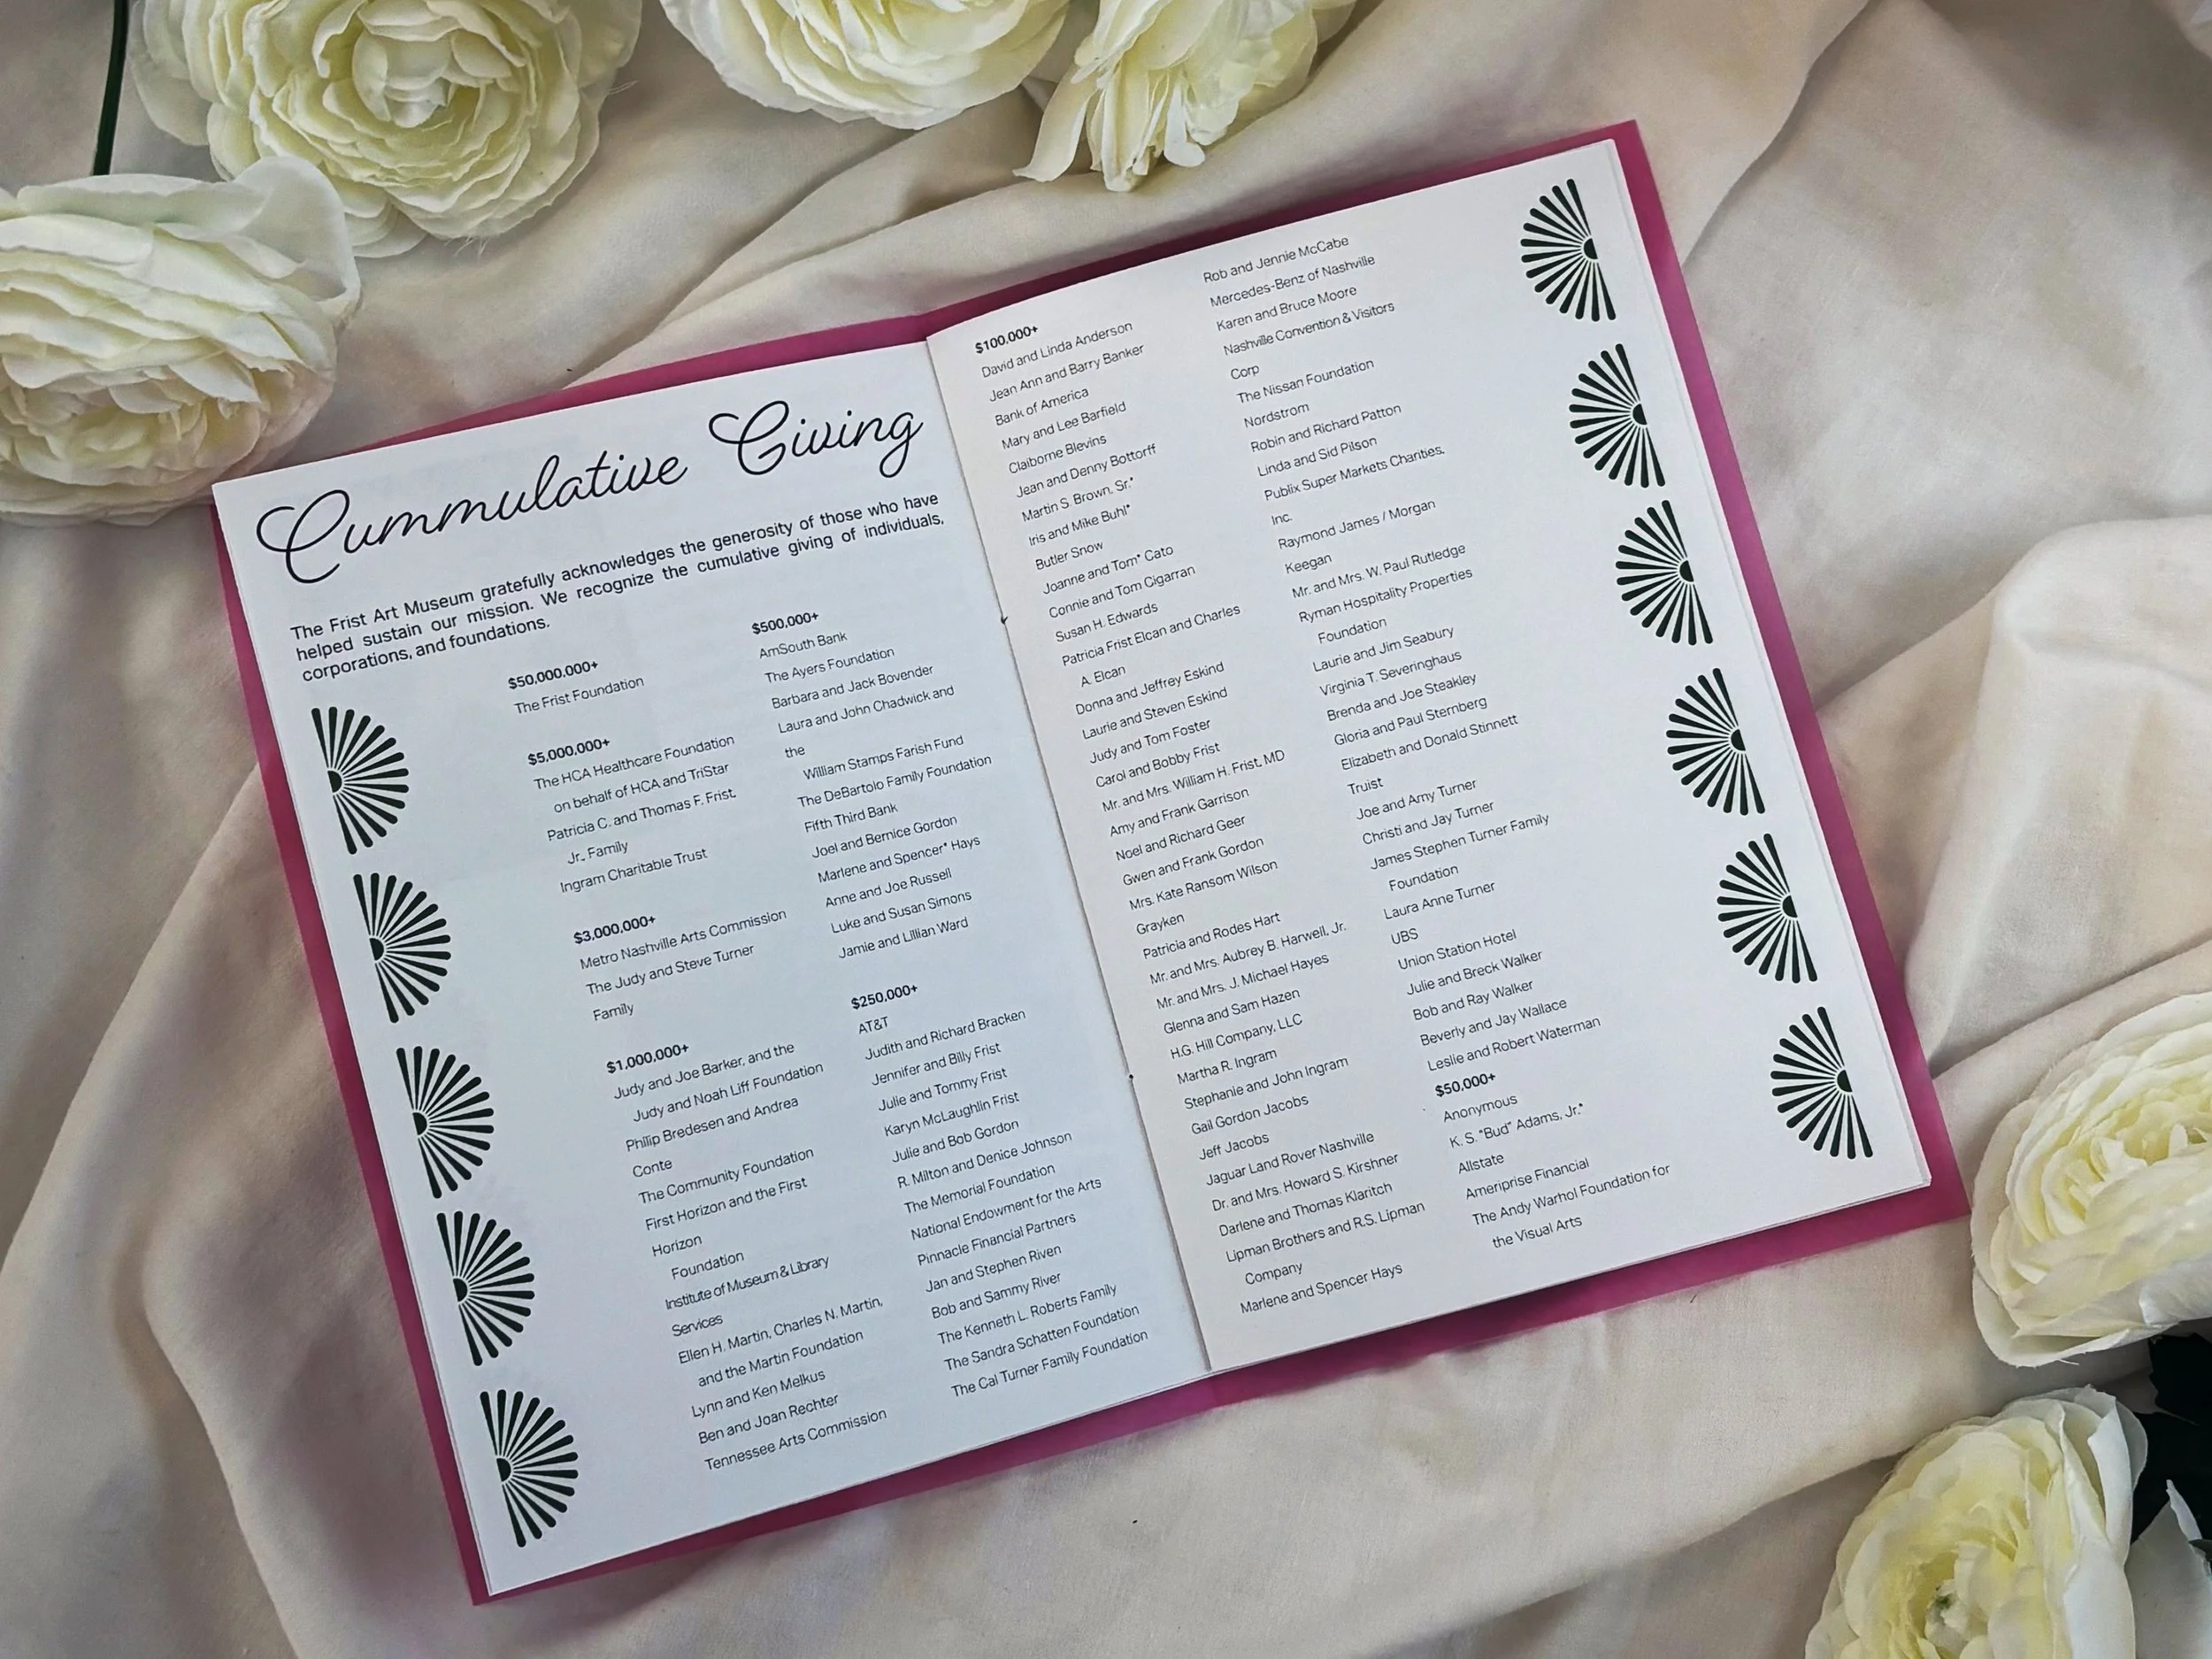 Cummulative Giving
The Frist Art Museum gratefully acknowledges the generosity of those who have
helped sustain our mission. We recognize the cumulative giving of individuals,
corporations, and foundations.
$50,000,000+
The Frist Foundation
$5,000,000+
The HCA Healthcare Foundation
on behalf of HCA and TriStar
Patricia C. and Thomas F. Frist,
Jr., Family
Ingram Charitable Trust
$3,000,000+
Metro Nashville Arts Commission
The Judy and Steve Turner
Family
$1,000,000+
Judy and Joe Barker, and the
Judy and Noah Liff Foundation
Philip Bredesen and Andrea
Conte
The Community Foundation
First Horizon and the First
Horizon
Foundation
Institute of Museum & Library
Services
Ellen H. Martin, Charles N. Martin,
and the Martin Foundation
Lynn and Ken Melkus
Ben and Joan Rechter
Tennessee Arts Commission
$500,000+
AmSouth Bank
The Ayers Foundation
Barbara and Jack Bovender
Laura and John Chadwick and
the
William Stamps Farish Fund
The DeBartolo Family Foundation
Fifth Third Bank
Joel and Bernice Gordon
Marlene and Spencer* Hays
Anne and Joe Russell
Luke and Susan Simons
Jamie and Lillian Ward
$250,000+
AT&T
Judith and Richard Bracken
Jennifer and Billy Frist
Julie and Tommy Frist
Karyn McLaughlin Frist
Julie and Bob Gordon
R. Milton and Denice Johnson
The Memorial Foundation
National Endowment for the Arts
Pinnacle Financial Partners
Jan and Stephen Riven
Bob and Sammy River
The Kenneth L. Roberts Family
The Sandra Schatten Foundation
The Cal Turner Family Foundation
$100,000+
David and Linda Anderson
Jean Ann and Barry Banker
Bank of America
Mary and Lee Barfield
Claiborne Blevins
Jean and Denny Bottorff
Martin S. Brown, Sr.*
Iris and Mike Buhl*
Butler Snow
Joanne and Tom* Cato
Connie and Tom Cigarran
Susan H. Edwards
Patricia Frist Elcan and Charles
A. Elcan
Donna and Jeffrey Eskind
Laurie and Steven Eskind
Judy and Tom Foster
Carol and Bobby Frist
Mr. and Mrs. William H. Frist, MD
Amy and Frank Garrison
Noel and Richard Geer
Gwen and Frank Gordon
Mrs. Kate Ransom Wilson
Grayken
Patricia and Rodes Hart
Mr. and Mrs. Aubrey B. Harwell, Jr.
Mr. and Mrs. J. Michael Hayes
Glenna and Sam Hazen
H.G. Hill Company, LLC
Martha R. Ingram
Stephanie and John Ingram
Gail Gordon Jacobs
Jeff Jacobs
Jaguar Land Rover Nashville
Dr. and Mrs. Howard S. Kirshner
Darlene and Thomas Klaritch
Lipman Brothers and R.S. Lipman
Company
Marlene and Spencer Hays
Rob and Jennie McCabe
Mercedes-Benz of Nashville
Karen and Bruce Moore
Nashville Convention & Visitors
Corp
The Nissan Foundation
Nordstrom
Robin and Richard Patton
Linda and Sid Pilson
Publix Super Markets Charities,
Inc.
Raymond James / Morgan
Keegan
Mr. and Mrs. W. Paul Rutledge
Ryman Hospitality Properties
Foundation
Laurie and Jim Seabury
Virginia T. Severinghaus
Brenda and Joe Steakley
Gloria and Paul Sternberg
Elizabeth and Donald Stinnett
Truist
Joe and Amy Turner
Christi and Jay Turner
James Stephen Turner Family
Foundation
Laura Anne Turner
UBS
Union Station Hotel
Julie and Breck Walker
Bob and Ray Walker
Beverly and Jay Wallace
Leslie and Robert Waterman
$50,000+
Anonymous
K. S. "Bud" Adams, Jr.*
Allstate
Ameriprise Financial
The Andy Warhol Foundation for
the Visual Arts